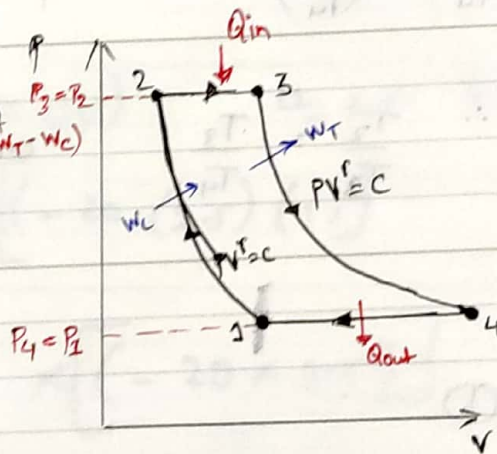 P
Qin
2
3
P3 = P2
WT - WC)
WT
PV^γ = C
WC
PV^γ = C
P4 = P1
1
4
Qout
V